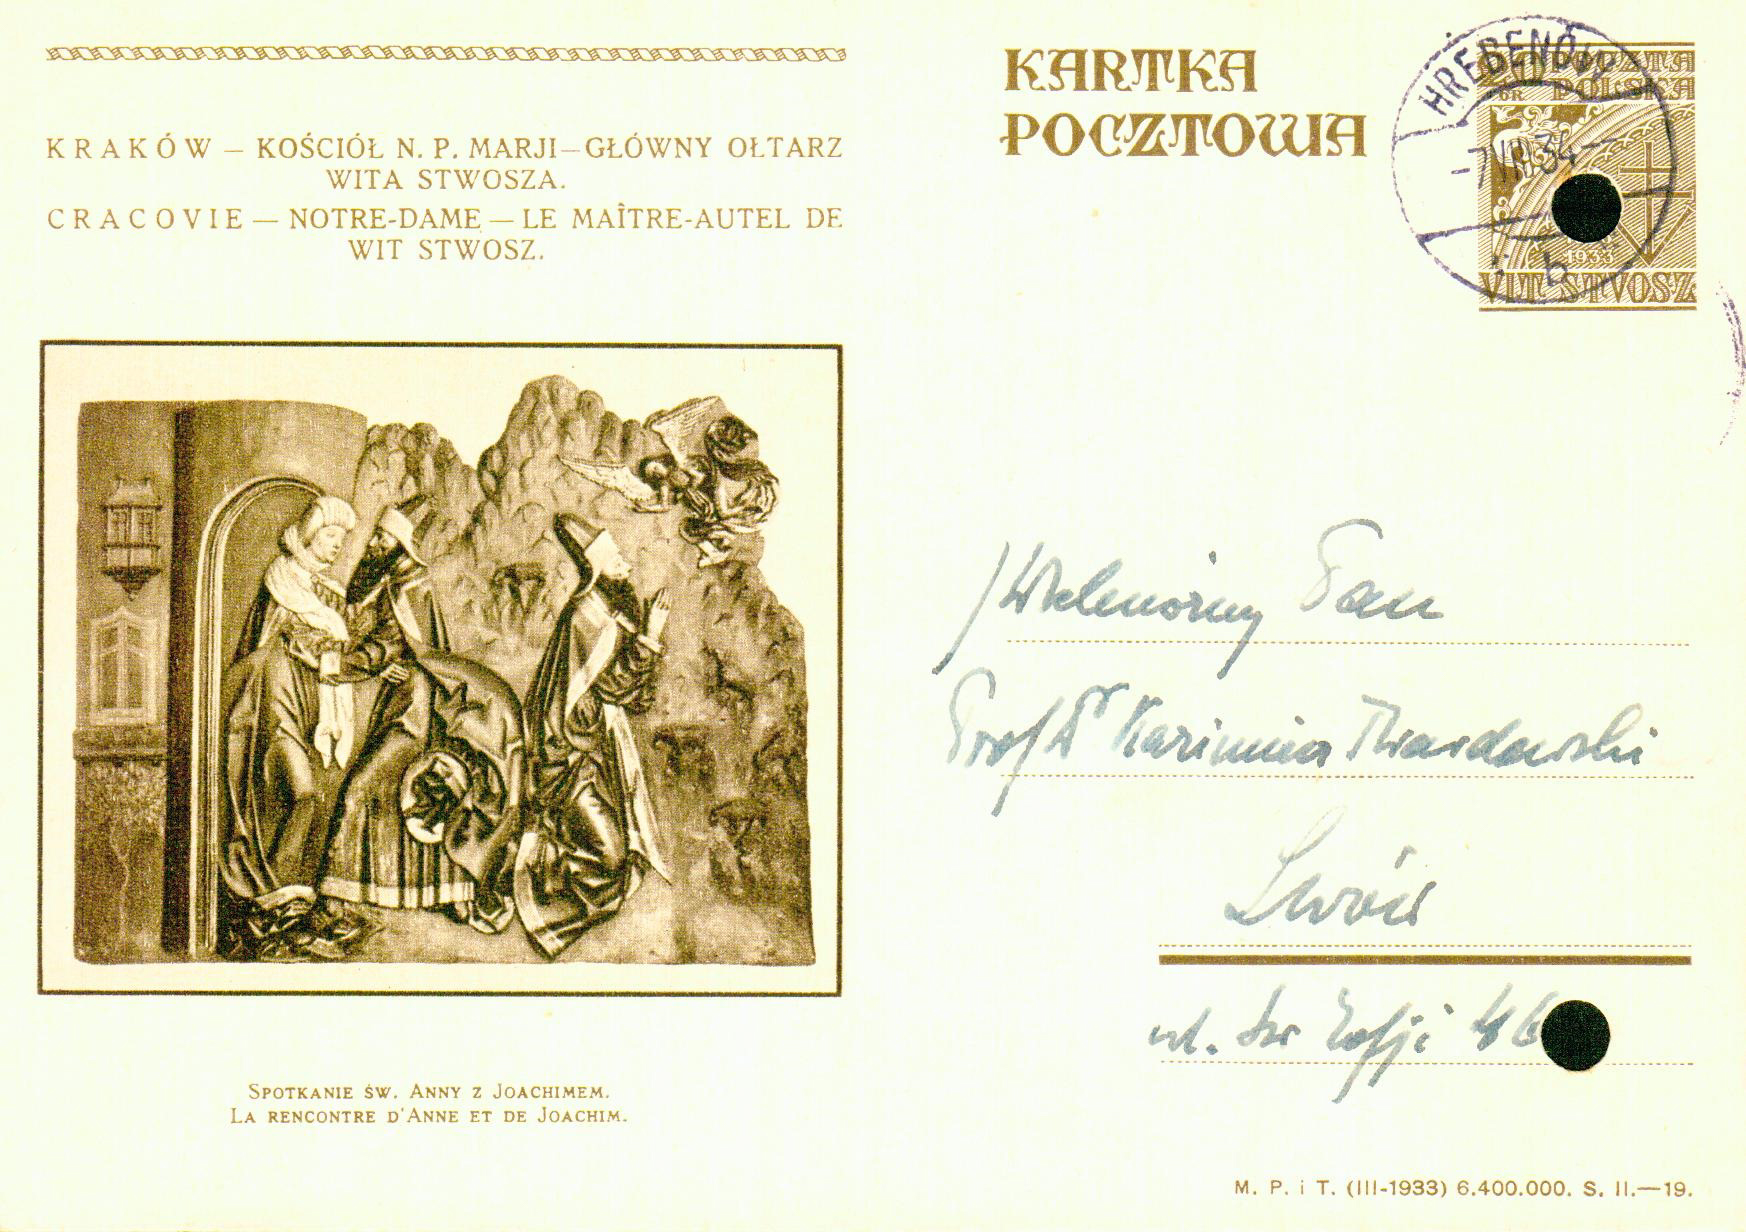 KRAKÓW — KOŚCIÓŁ N. P. MARJI—GŁÓWNY OŁTARZ
WITA STWOSZA.
CRACOVIE — NOTRE-DAME — LE MAÎTRE-AUTEL DE
WIT STWOSZ.
SPOTKANIE ŚW. ANNY Z JOACHIMEM.
LA RENCONTRE D'ANNE ET DE JOACHIM.
KARTKA
POCZTOWA
POCZTA
GR POLSKA
1933
VIT STVOSZ
HREBENÓW
-7 VIII 34-
b
Wielmożny Pan
Prof Dr Kazimierz Twardowski
Lwów
ul. św Zofji 46
M. P. i T. (III-1933) 6.400.000. S. II.—19.